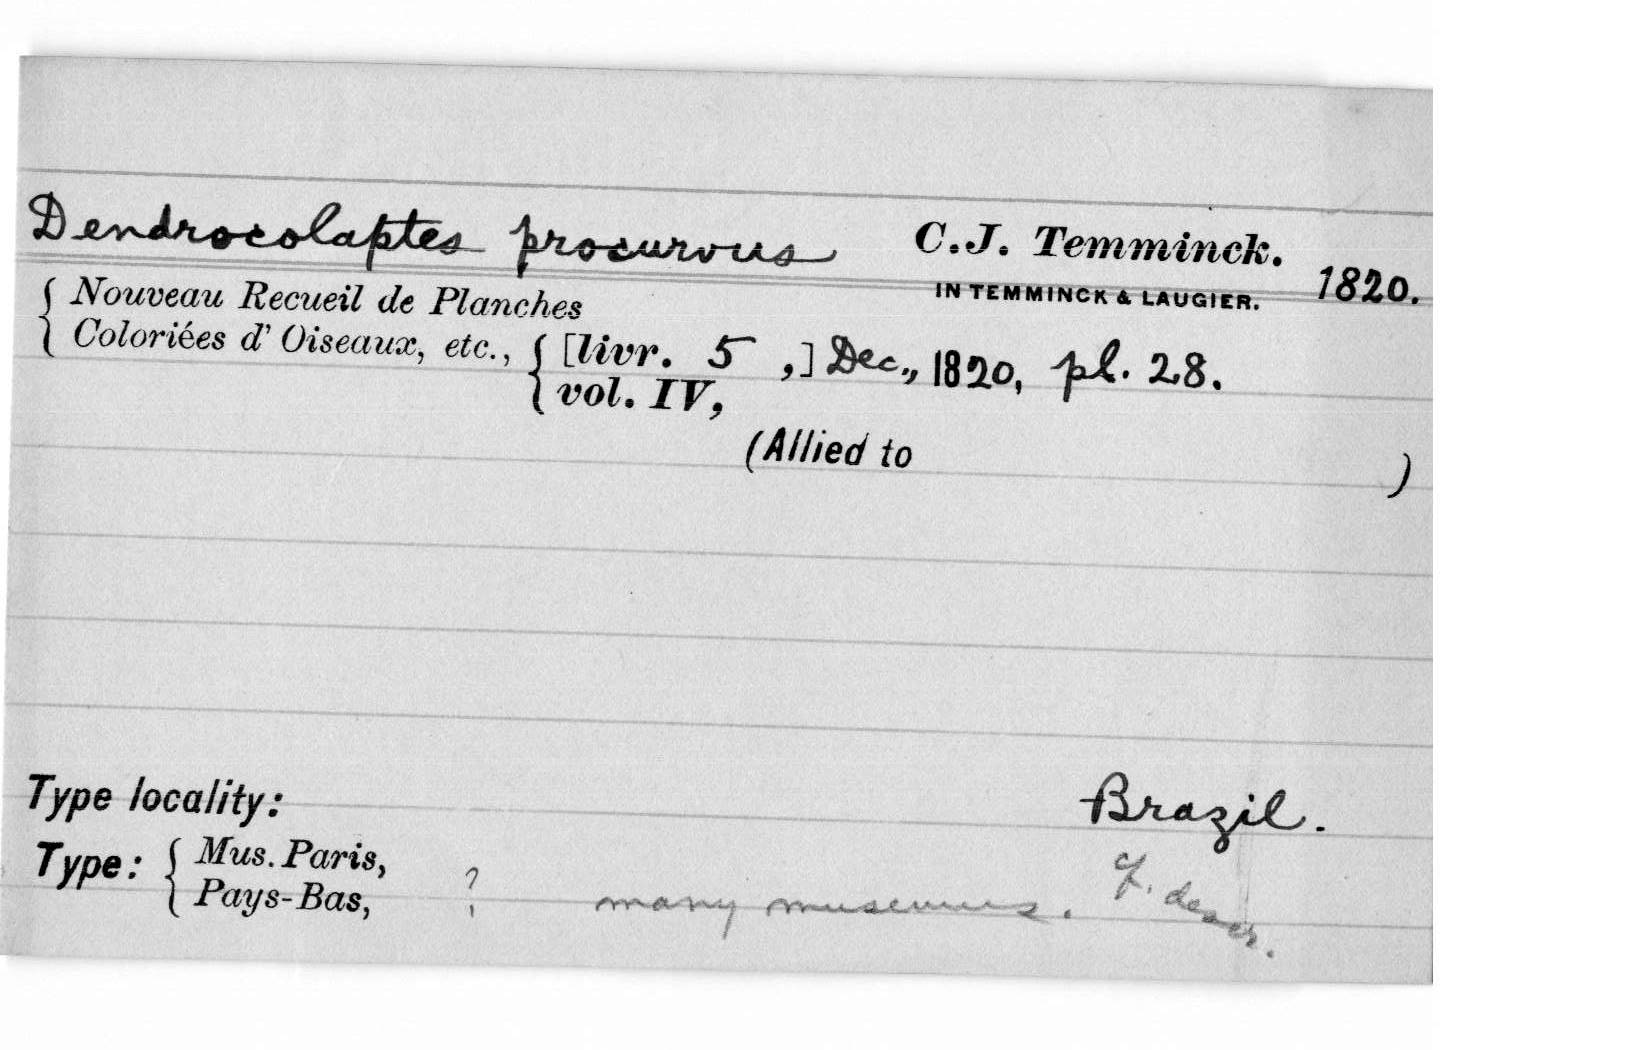 Dendrocolaptes procurvus C.J. Temminck.
IN TEMMINCK & LAUGIER. 1820.
{ Nouveau Recueil de Planches
Coloriées d' Oiseaux, etc., { [livr. 5 ,] Dec., 1820, pl. 28.
vol. IV,
(Allied to )
Type locality: Brazil.
Type: { Mus. Paris,
Pays-Bas, ? many museums. F. descr.